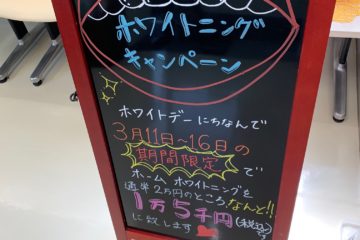 ホワイトニング
キャンペーン
ホワイトデーにちなんで
3月11日~16日の
期間限定で
ホームホワイトニングを
通常2万円のところなんと!!
1万5千円(税込)
に致します